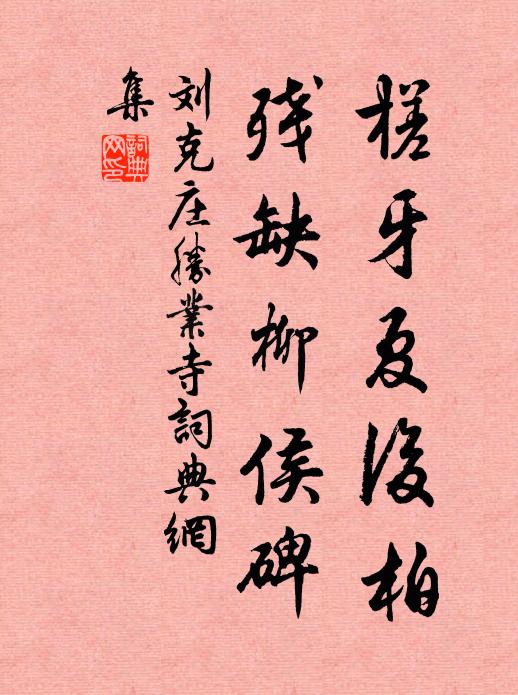 槎牙夏後柏
残缺柳侯碑
刘克庄勝業寺詞典網
集
詞典
网印